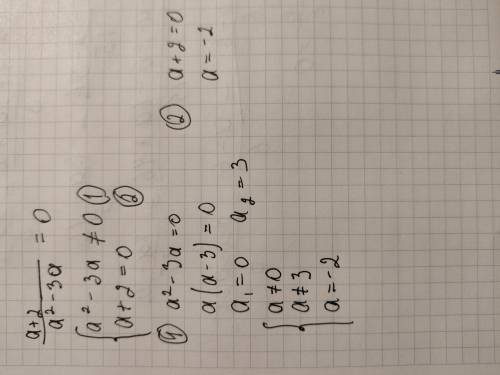 a+2 / a² - 3a = 0
{ a² - 3a ≠ 0 ①
{ a + 2 = 0 ②
① a² - 3a = 0
a(a - 3) = 0
a₁ = 0 a₂ = 3
{ a ≠ 0
{ a ≠ 3
{ a = -2
② a + 2 = 0
a = -2